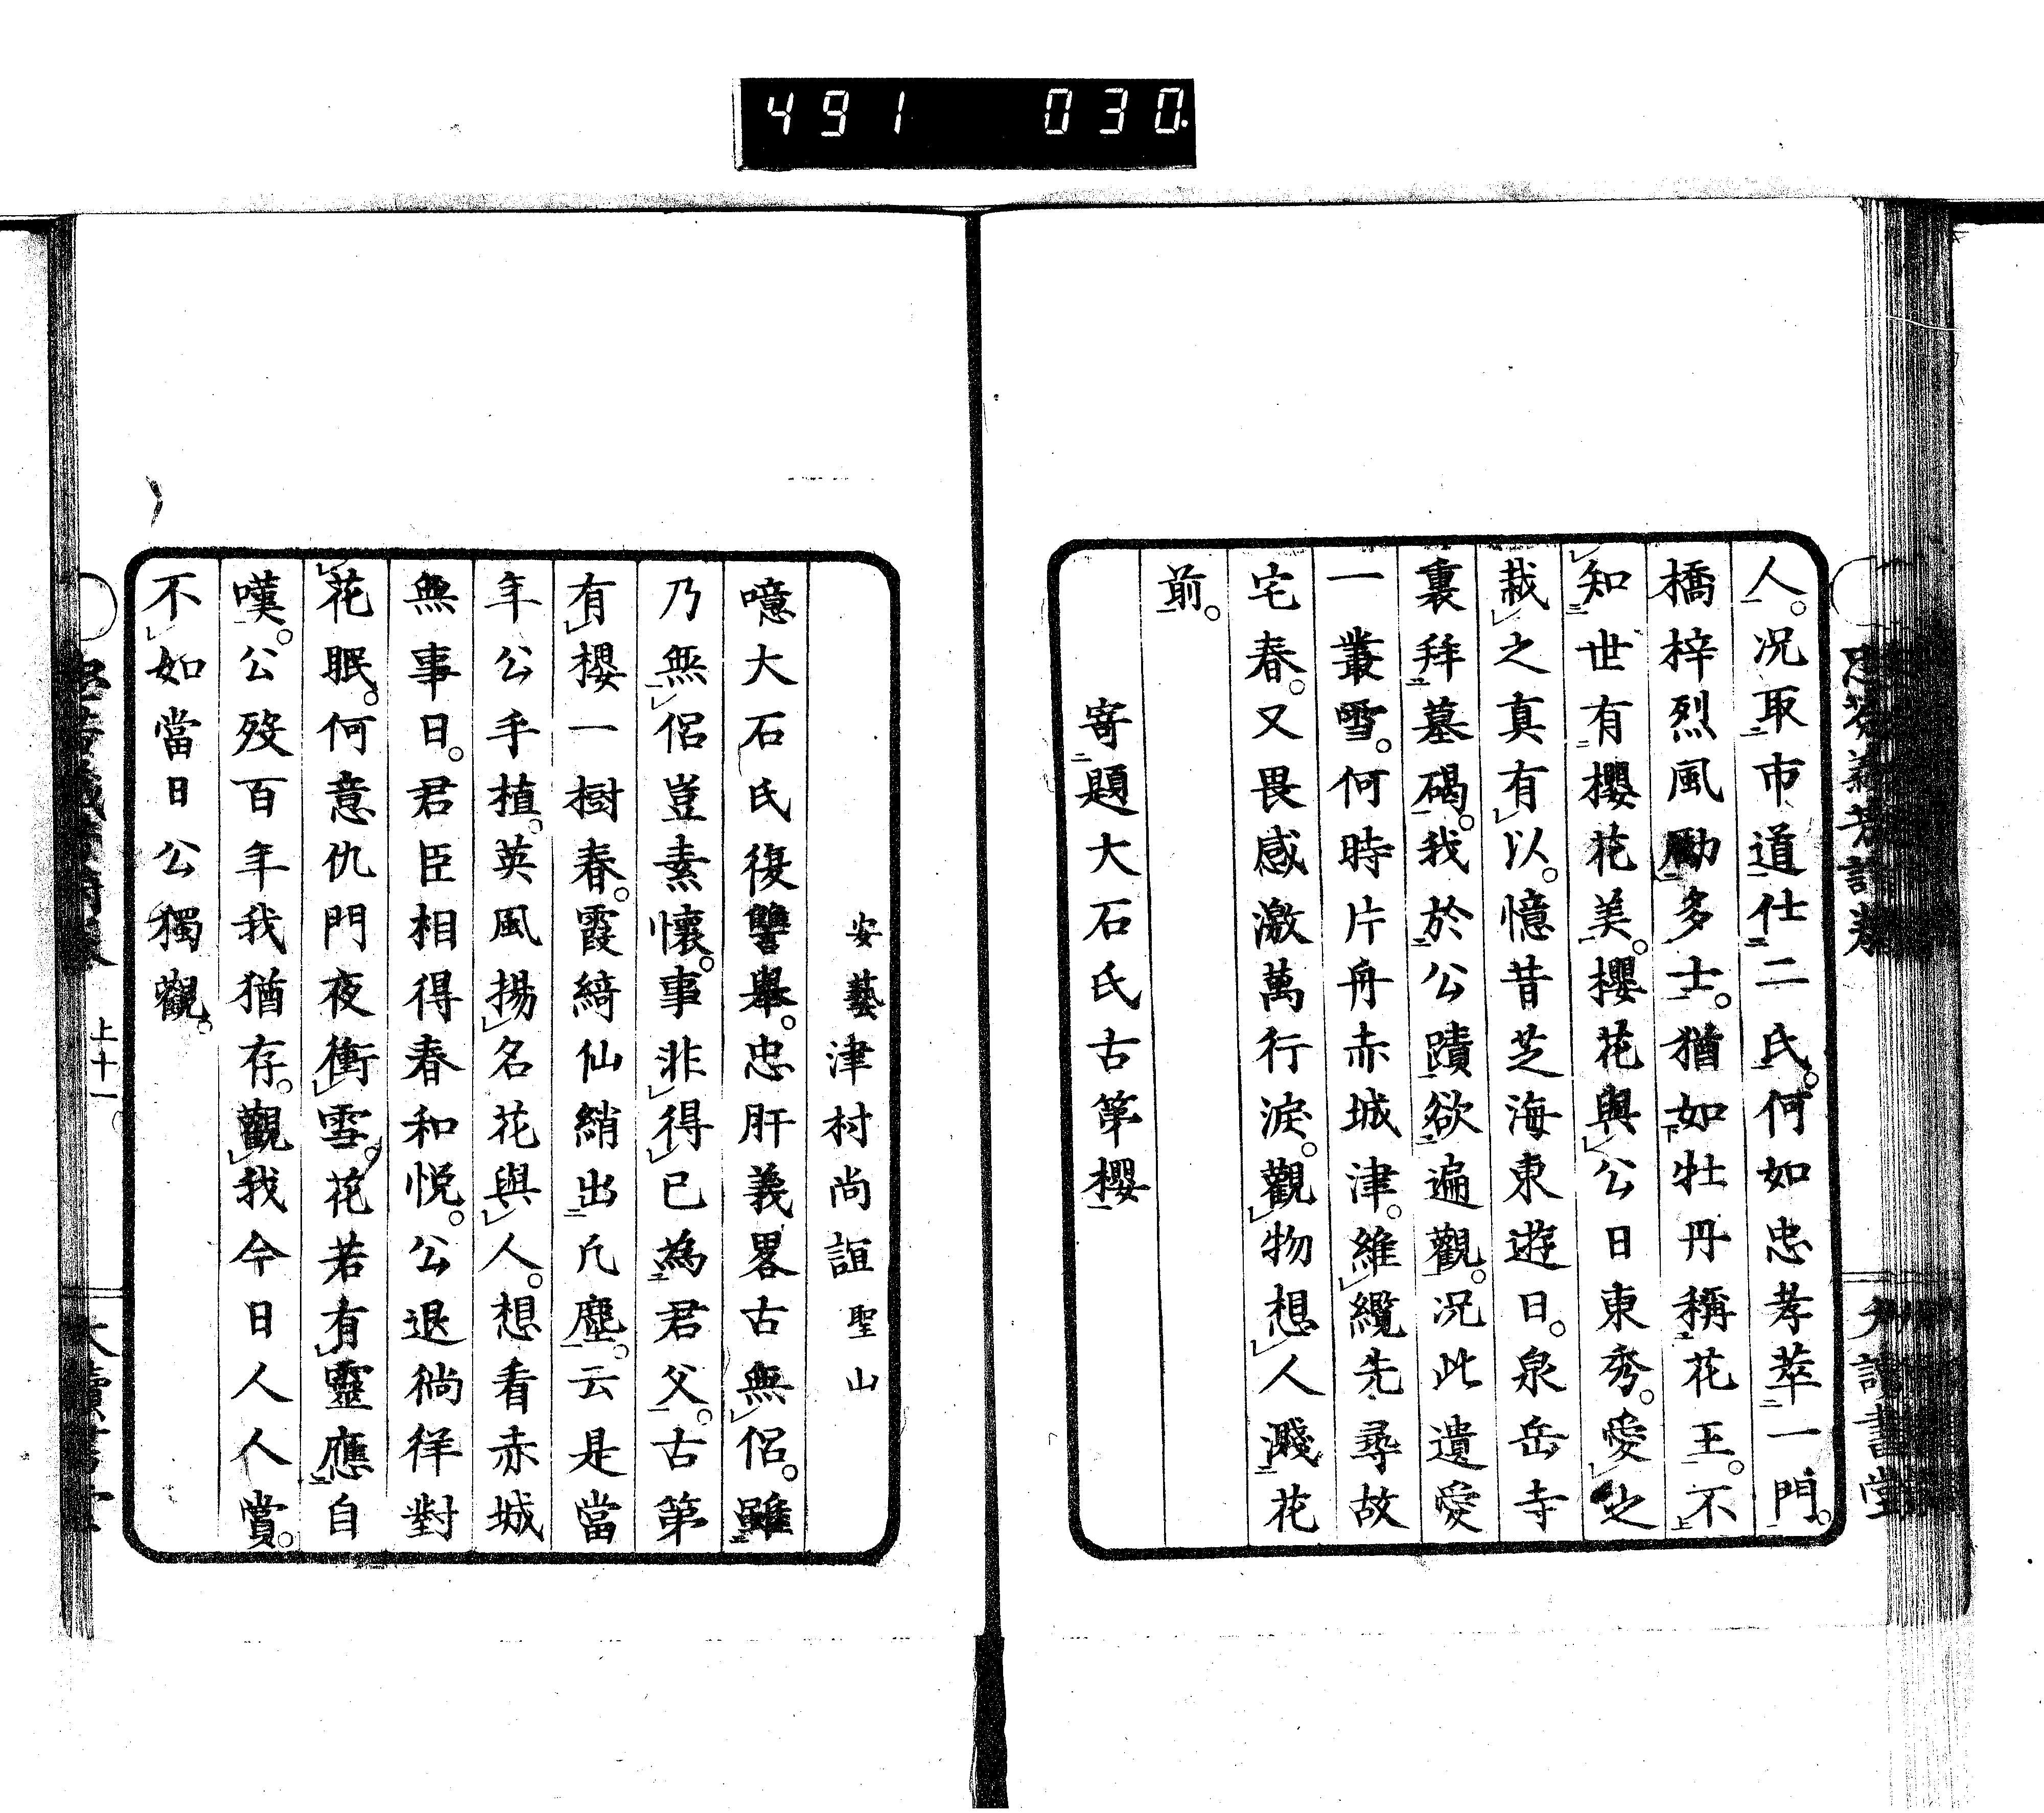 491 030
人。況取市道仕二氏。何如忠孝萃一門。
橋梓烈風勵多士。猶如牡丹稱花王。不
知世有櫻花美。櫻花與公日東秀。愛之
栽之真有以。憶昔芝海東遊日。泉岳寺
裏拜墓碣。我於公蹟欲遍觀。況此遺愛
一叢雪。何時片舟赤城津。維纜先尋故
宅春。又畏感激萬行淚。觀物想人濺花
前。
寄題大石氏古第櫻
安藝津村尚誼聖山
噫大石氏復讐舉。忠肝義畧古無侶。雖
乃無侶豈素懷。事非得已為君父。古第
有櫻一樹春。霞綺仙綃出凡塵。云是當
年公手植。英風揚名花與人。想看赤城
無事日。君臣相得春和悅。公退徜徉對
花眠。何意仇門夜衝雪。花若有靈應自
嘆。公歿百年我猶存。觀我今日人人賞。
不如當日公獨觀。
上十一